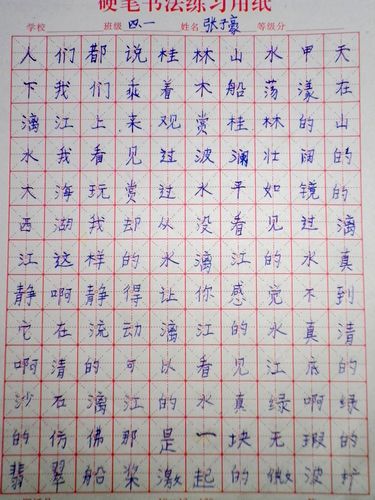 硬笔书法练习用纸
学校 班级 四、一 姓名 张子豪 等级分
人们都说桂林山水甲天
下我们乘着木船荡漾在
漓江上来观赏桂林的山
水我看见过波澜壮阔的
大海玩赏过水平如镜的
西湖我却从没看见过漓
江这样的水漓江的水真
静啊静得让你感觉不到
它在流动漓江的水真清
啊清的可以看见江底的
沙石漓江的水真绿啊绿
的仿佛那是一块无瑕的
翡翠船桨激起的微波扩